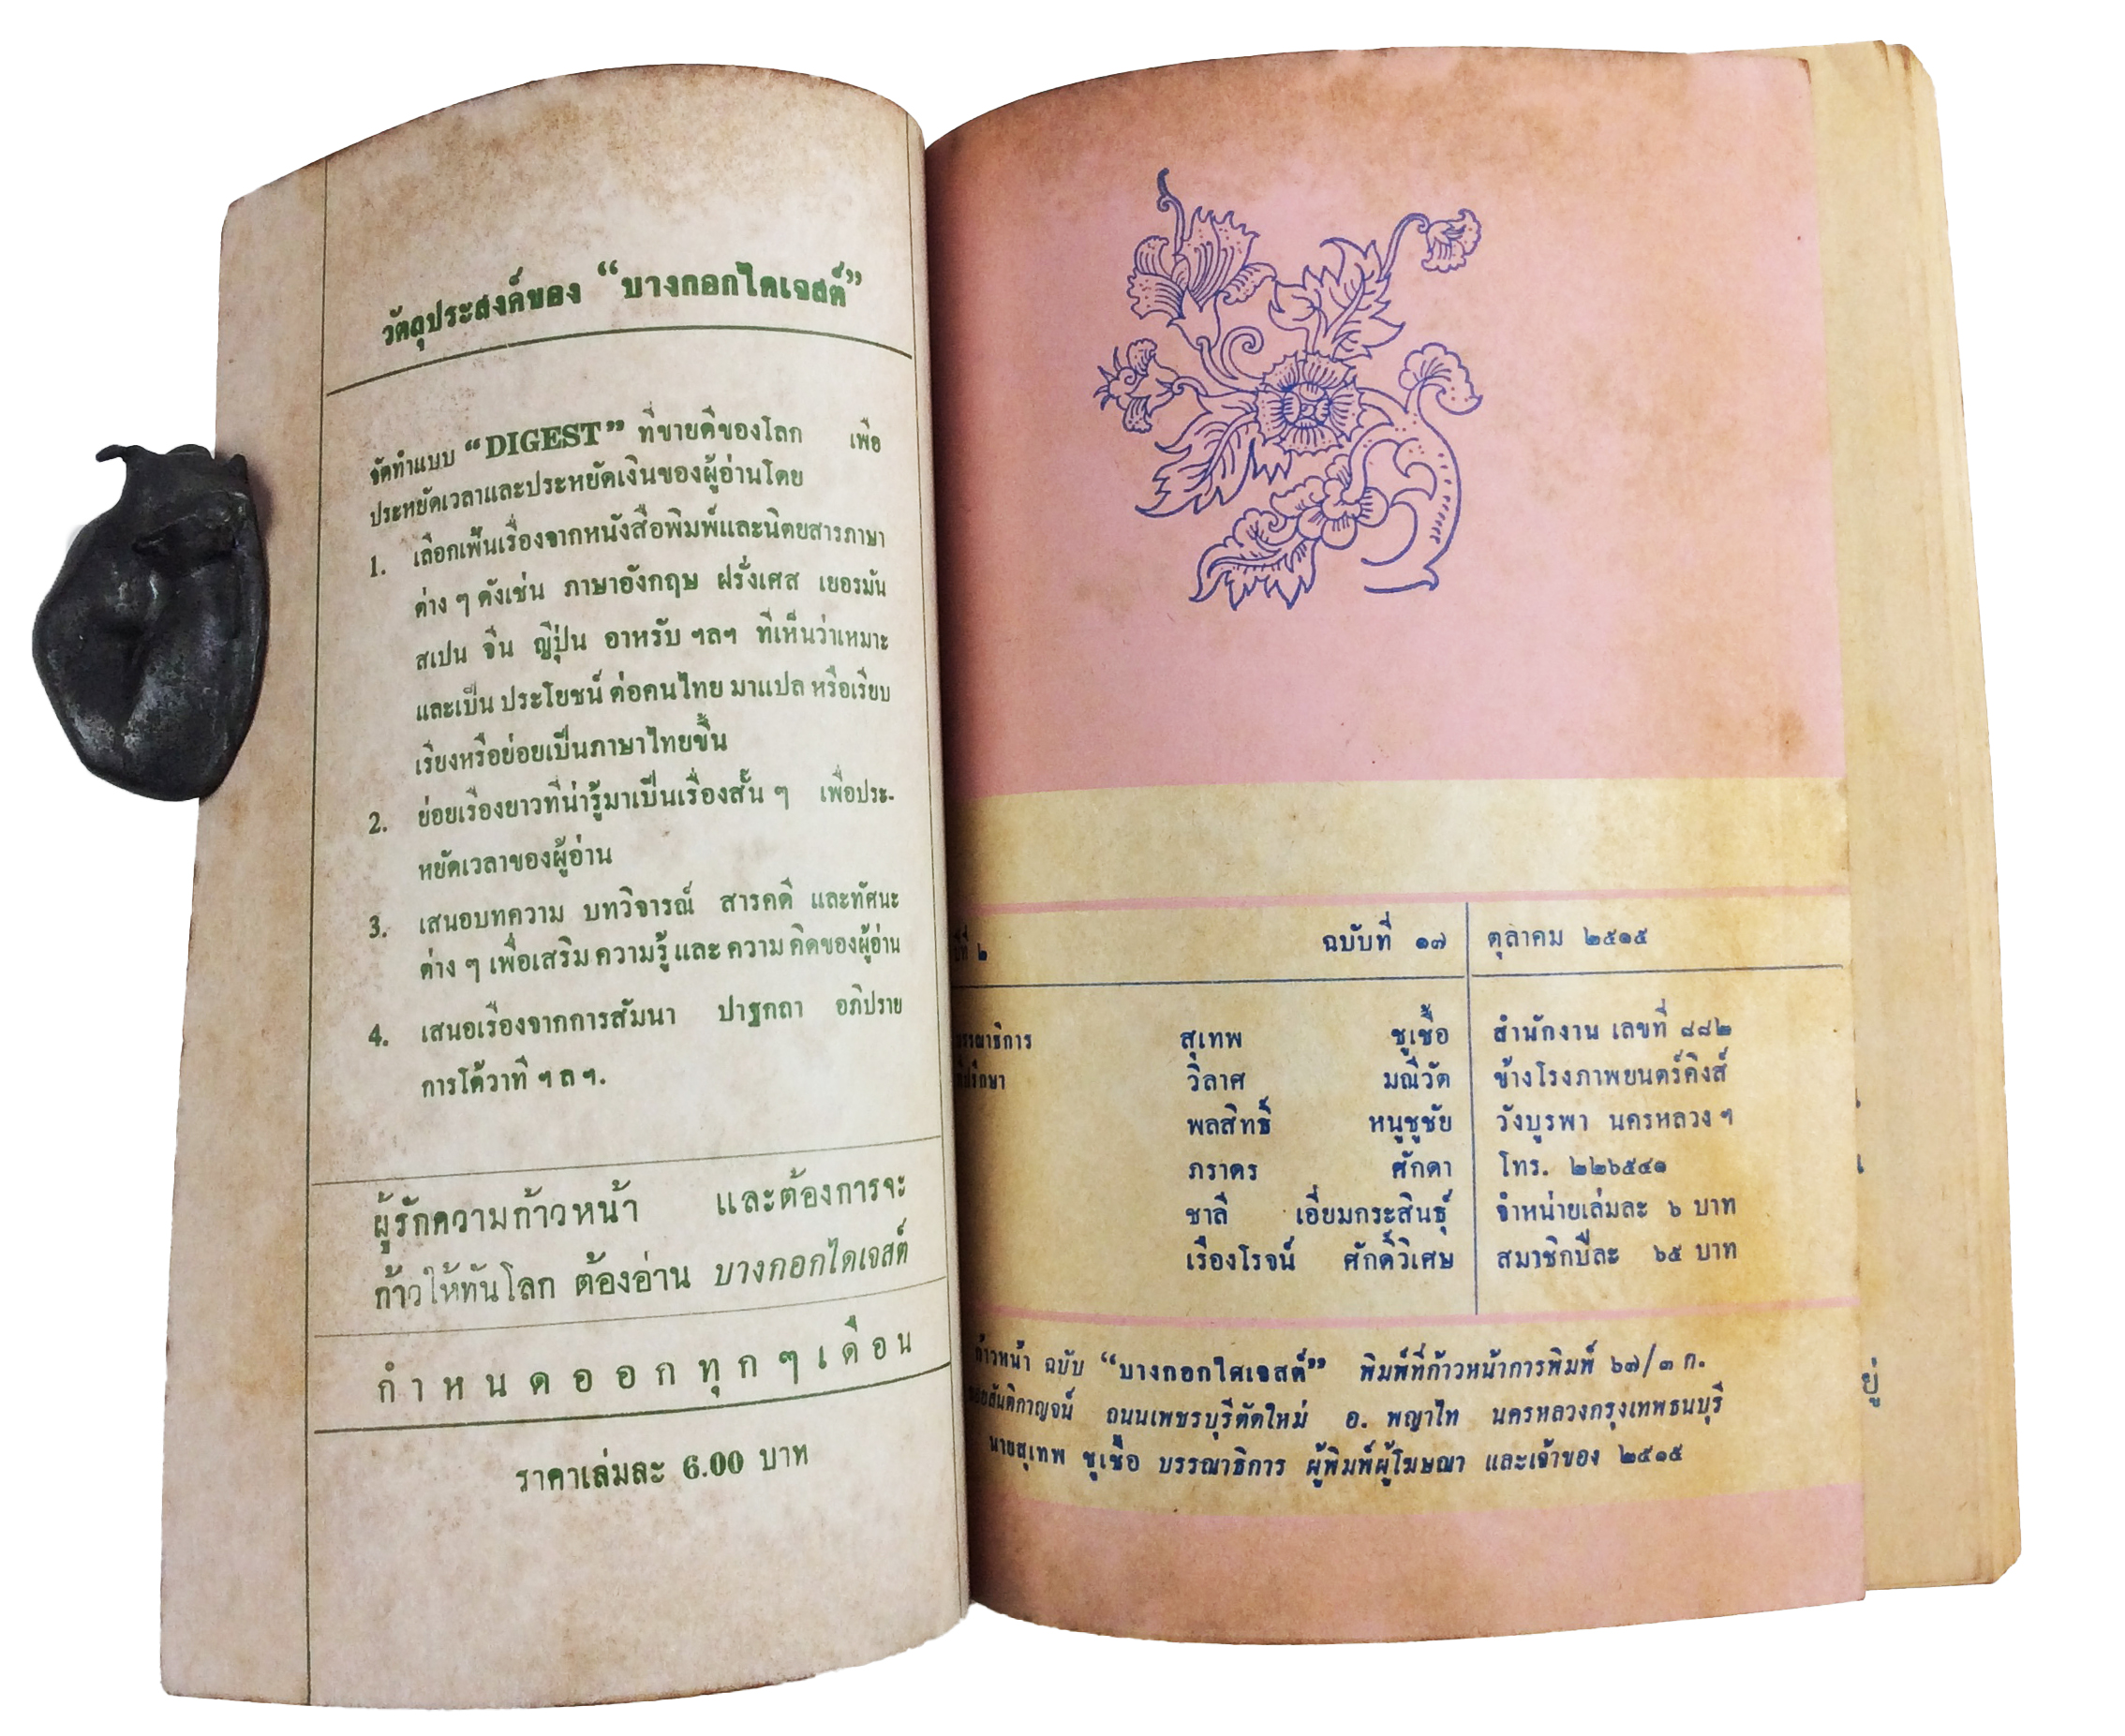 วัตถุประสงค์ของ “บางกอกไดเจสต์”
จัดทำแบบ “DIGEST” ที่ขายดีของโลก เพื่อ
ประหยัดเวลาและประหยัดเงินของผู้อ่านโดย
1. เลือกเฟ้นเรื่องจากหนังสือพิมพ์และนิตยสารภาษา
ต่าง ๆ ดังเช่น ภาษาอังกฤษ ฝรั่งเศส เยอรมัน
สเปน จีน ญี่ปุ่น อาหรับ ฯลฯ ที่เห็นว่าเหมาะ
และเป็น ประโยชน์ ต่อคนไทย มาแปล หรือเรียบ
เรียงหรือย่อยเป็นภาษาไทยขึ้น
2. ย่อยเรื่องยาวที่น่ารู้มาเป็นเรื่องสั้น ๆ เพื่อประ-
หยัดเวลาของผู้อ่าน
3. เสนอบทความ บทวิจารณ์ สารคดี และทัศนะ
ต่าง ๆ เพื่อเสริม ความรู้ และ ความ คิดของผู้อ่าน
4. เสนอเรื่องจากการสัมนา ปาฐกถา อภิปราย
การโต้วาที ฯ ล ฯ.
ผู้รักความก้าวหน้า และต้องการจะ
ก้าวให้ทันโลก ต้องอ่าน บางกอกไดเจสต์
กำหนดออกทุกๆเดือน
ราคาเล่มละ 6.00 บาท
ปีที่ ๒ ฉบับที่ ๑๗ ตุลาคม ๒๕๑๕
บรรณาธิการ สุเทพ ชูเชื้อ
วิลาศ มณีวัต
พลสิทธิ์ หนูชูชัย
ภราดร ศักดา
ชาลี เอี่ยมกระสินธุ์
เรืองโรจน์ ศักดิ์วิเศษ
สำนักงาน เลขที่ ๘๘๒
ข้างโรงภาพยนตร์คิงส์
วังบูรพา นครหลวง ฯ
โทร. ๒๒๖๕๔๑
จำหน่ายเล่มละ ๖ บาท
สมาชิกปีละ ๖๕ บาท
ก้าวหน้า ฉบับ “บางกอกไดเจสต์” พิมพ์ที่ก้าวหน้าการพิมพ์ ๖๗/๓ ก.
ถนนเพชรบุรีตัดใหม่ อ. พญาไท นครหลวงกรุงเทพธนบุรี
นายสุเทพ ชูเชื้อ บรรณาธิการ ผู้พิมพ์ผู้โฆษณา และเจ้าของ ๒๕๑๕
ยู่